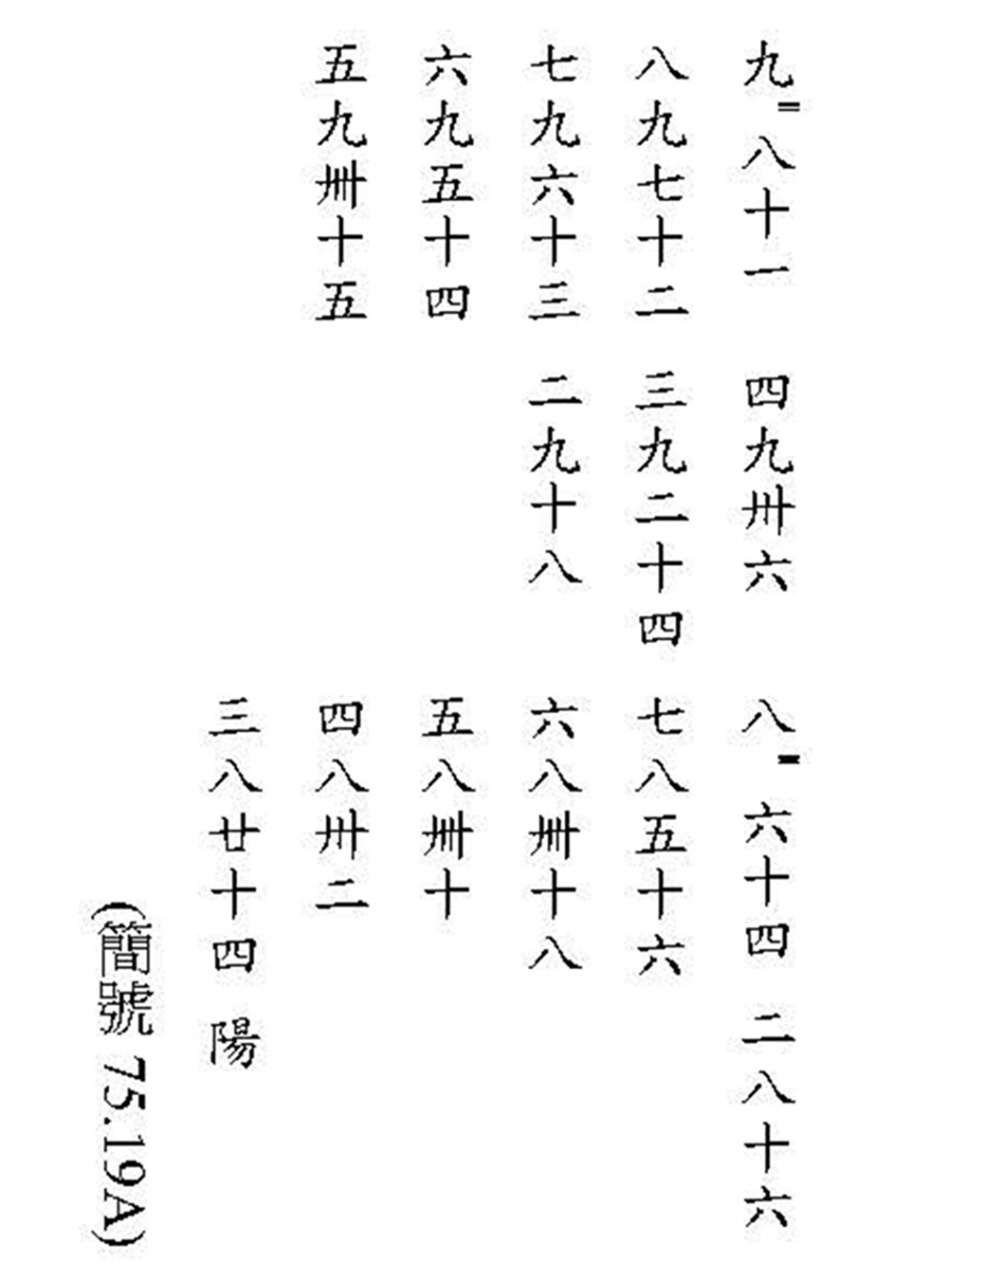 九〓八十一
八九七十二
七九六十三
六九五十四
五九卌十五
四九卅六
三九二十四
二九十八
八〓六十四
七八五十六
六八卌十八
五八卌十
四八卅二
三八廿十四
二八十六
陽
(簡號 75.19A)